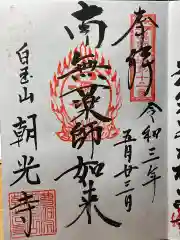 奉拝
令和三年
五月廿二日
南無薬師如来
白玉山
朝光寺